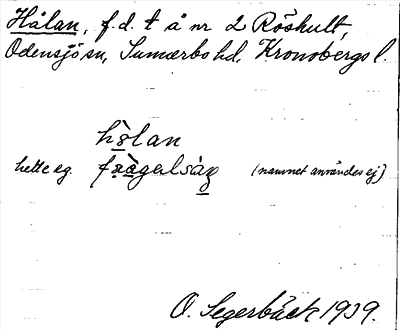 Hålan, f.d. t å nr 2 Röshult,
Odensjö sn, Sunnerbo hd, Kronobergs l.
hòlan
hette eg. fràgalsàn (namnet användes ej)
O. Segerbäck 1939.